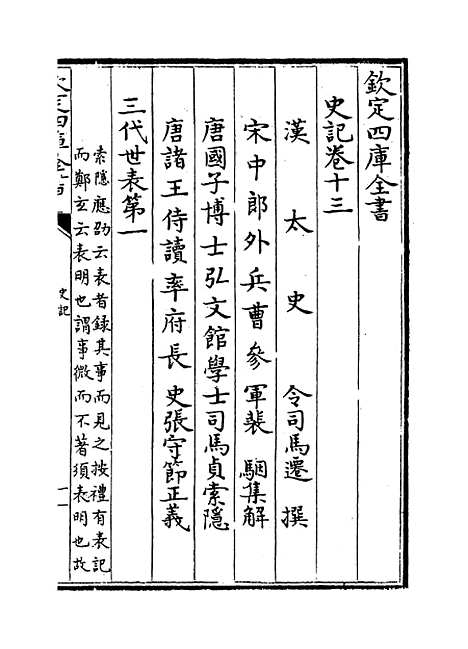 欽定四庫全書
史記卷十三
漢太史令司馬遷撰
宋中郎外兵曹參軍裴駰集解
唐國子博士弘文館學士司馬貞索隱
唐諸王侍讀率府長史張守節正義
三代世表第一
索隱應劭云表者錄其事而見之按禮有表記
而鄭玄云表明也謂事微而不著須表明也故
欽定四庫全書
史記
一